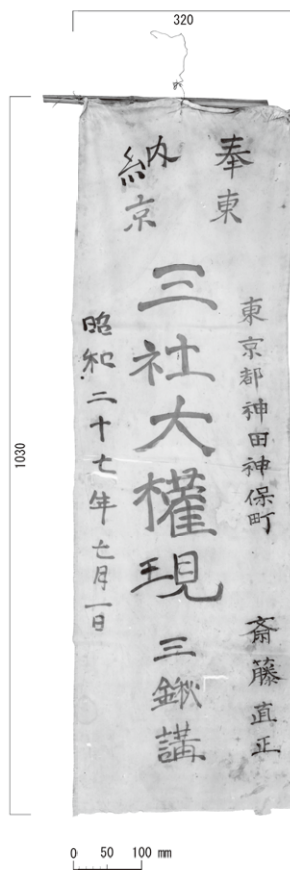 320
1030
奉納
東京
東京都神田神保町 斎藤直正
三社大權現 三鍬講
昭和二十七年七月一日
0 50 100 mm